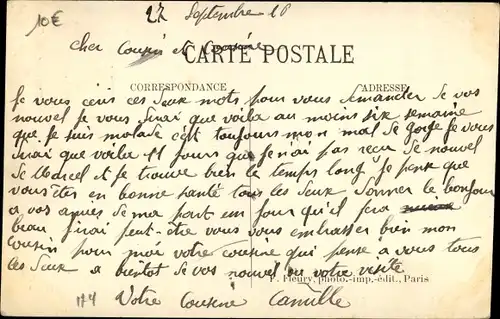 10€
27 Septembre 18
cher Cousin et Cousine
CARTE POSTALE
CORRESPONDANCE
ADRESSE
Je vous ecris ces deux mots pour vous demander de vos
nouvel je vous dirai que voila au moins six semaine
que je suis malade c'est toujours mon mal de gorge je vous
dirai que voila 11 jours que je n'ai pas reçu de nouvel
de Marcel et je trouve bien le temps long je pense que
vous êtes en bonne santé tous les deux donner le bonjour
a vos amies de ma part un jour qu'il fera
beau j'irai peut-être vous vous embrasser bien mon
cousin pour moi votre cousine qui pense a vous tous
les deux a bientot de vos nouvel ou votre visite
F. Fleury, photo.-imp.-édit., Paris
Votre Cousine Camille